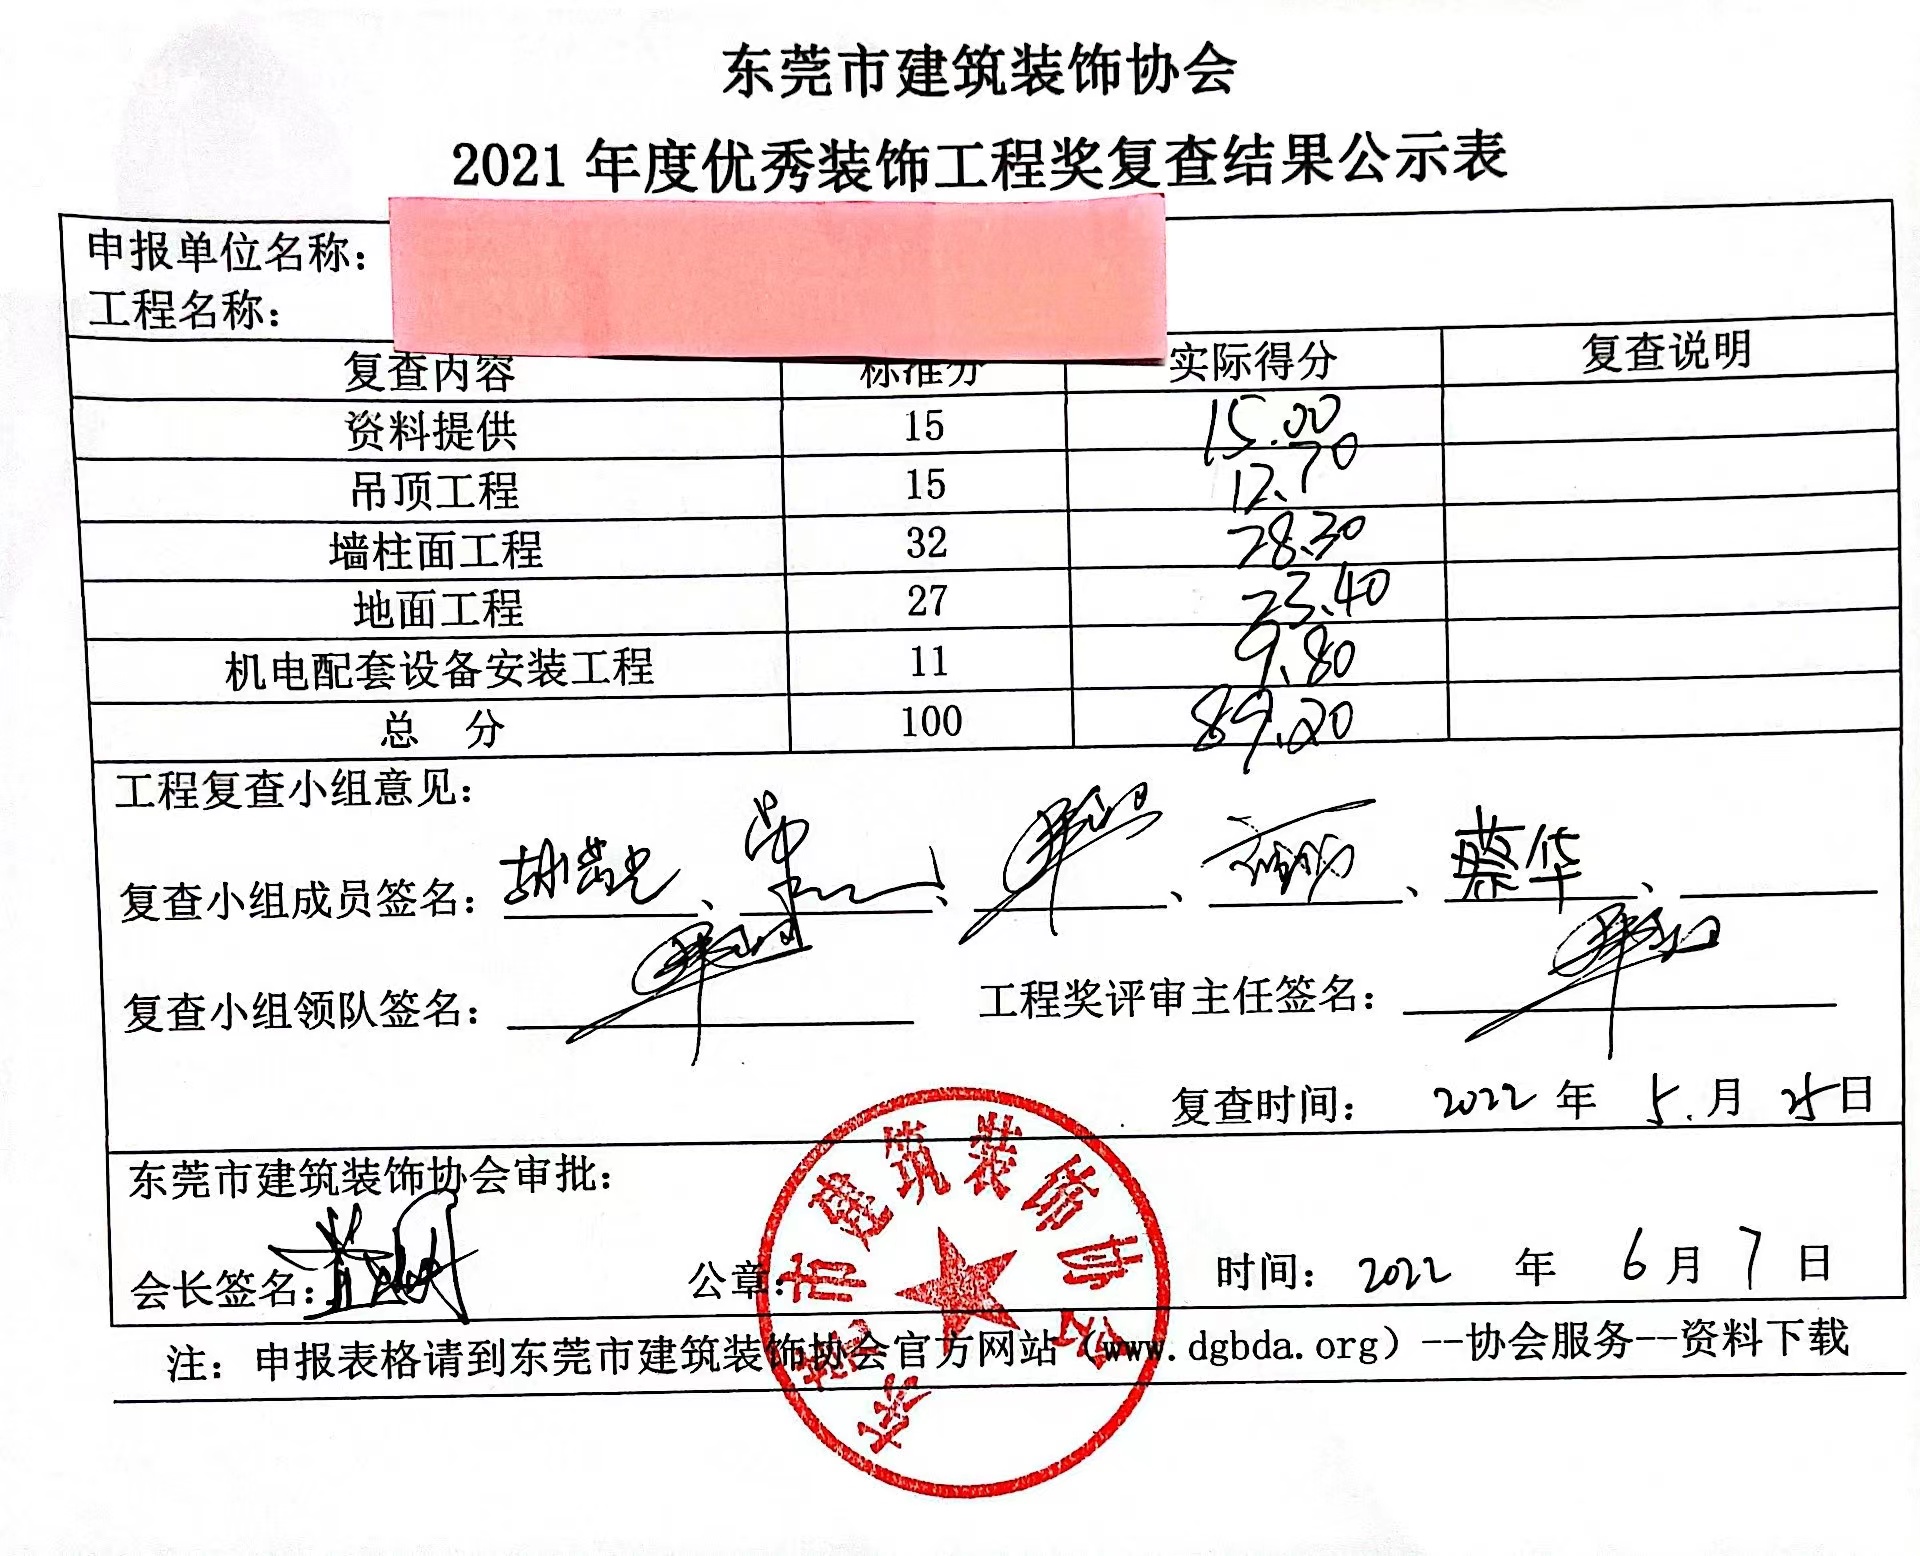 东莞市建筑装饰协会
2021年度优秀装饰工程奖复查结果公示表
申报单位名称：
工程名称：
复查内容 标准分 实际得分 复查说明
资料提供 15 15.00
吊顶工程 15 12.70
墙柱面工程 32 28.30
地面工程 27 23.40
机电配套设备安装工程 11 9.80
总 分 100 89.20
工程复查小组意见：
复查小组成员签名： 、 、 、 、蔡华、
复查小组领队签名： 工程奖评审主任签名：
复查时间： 2022 年 5.月 25日
东莞市建筑装饰协会审批：
会长签名： 公章： 时间：2022 年 6月 7 日
注：申报表格请到东莞市建筑装饰协会官方网站（www.dgbda.org）--协会服务--资料下载
东莞市建筑装饰协会